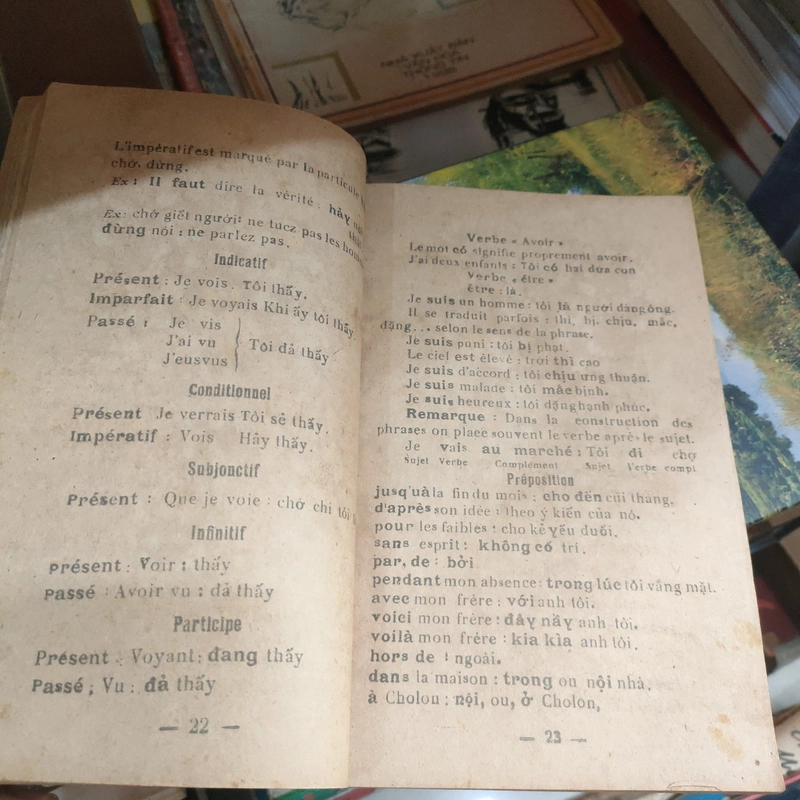 L'impératif est marqué par la particule
chớ, đừng.
Ex : Il faut dire la vérité : hãy
Ex: chớ giết người: ne tuez pas les
đừng nói : ne parlez pas.
Indicatif
Présent : Je vois. Tôi thấy.
Imparfait : Je voyais Khi ấy tôi thấy.
Passé : Je vis
J'ai vu } Tôi đả thấy
J'eusvus
Conditionnel
Présent Je verrais Tôi sẽ thấy.
Impératif : Vois Hãy thấy.
Subjonctif
Présent : Que je voie : chớ chi tôi
Infinitif
Présent : Voir : thấy
Passé : Avoir vu : đả thấy
Participe
Présent : Voyant : đang thấy
Passé ; Vu : đả thấy
— 22 —
Verbe « Avoir »
Le mot có signifie proprement avoir.
J'ai deux enfants : Tôi có hai đứa con
Verbe « être »
être : là.
Je suis un homme : tôi là người đàngông.
Il se traduit parfois : thì, bị, chịu, mắc,
đặng... selon le sens de la phrase.
Je suis puni : tôi bị phạt.
Le ciel est élevé : trời thì cao
Je suis d'accord : tôi chịu ưng thuận.
Je suis malade : tôi mắc bịnh.
Je suis heureux : tôi đặng hạnh phúc.
Remarque : Dans la construction des
phrases on place souvent le verbe après le sujet.
Je vais au marché : Tôi đi chợ
Sujet Verbe Complement Sujet Verbe compl
Préposition
jusqu'à la fin du mois : cho đến cùi tháng.
d'après son idée : theo ý kiến của nó.
pour les faibles : cho kẻ yếu đuối.
sans esprit : không có trí.
par, de : bởi
pendant mon absence: trong lúc tôi vắng mặt.
avec mon frère : với anh tôi.
voici mon frère : đây nầy anh tôi.
voilà mon frère : kia kìa anh tôi.
hors de : ngoài.
dans la maison : trong ou nội nhà.
à Cholon : nội, ou, ở Cholon,
— 23 —